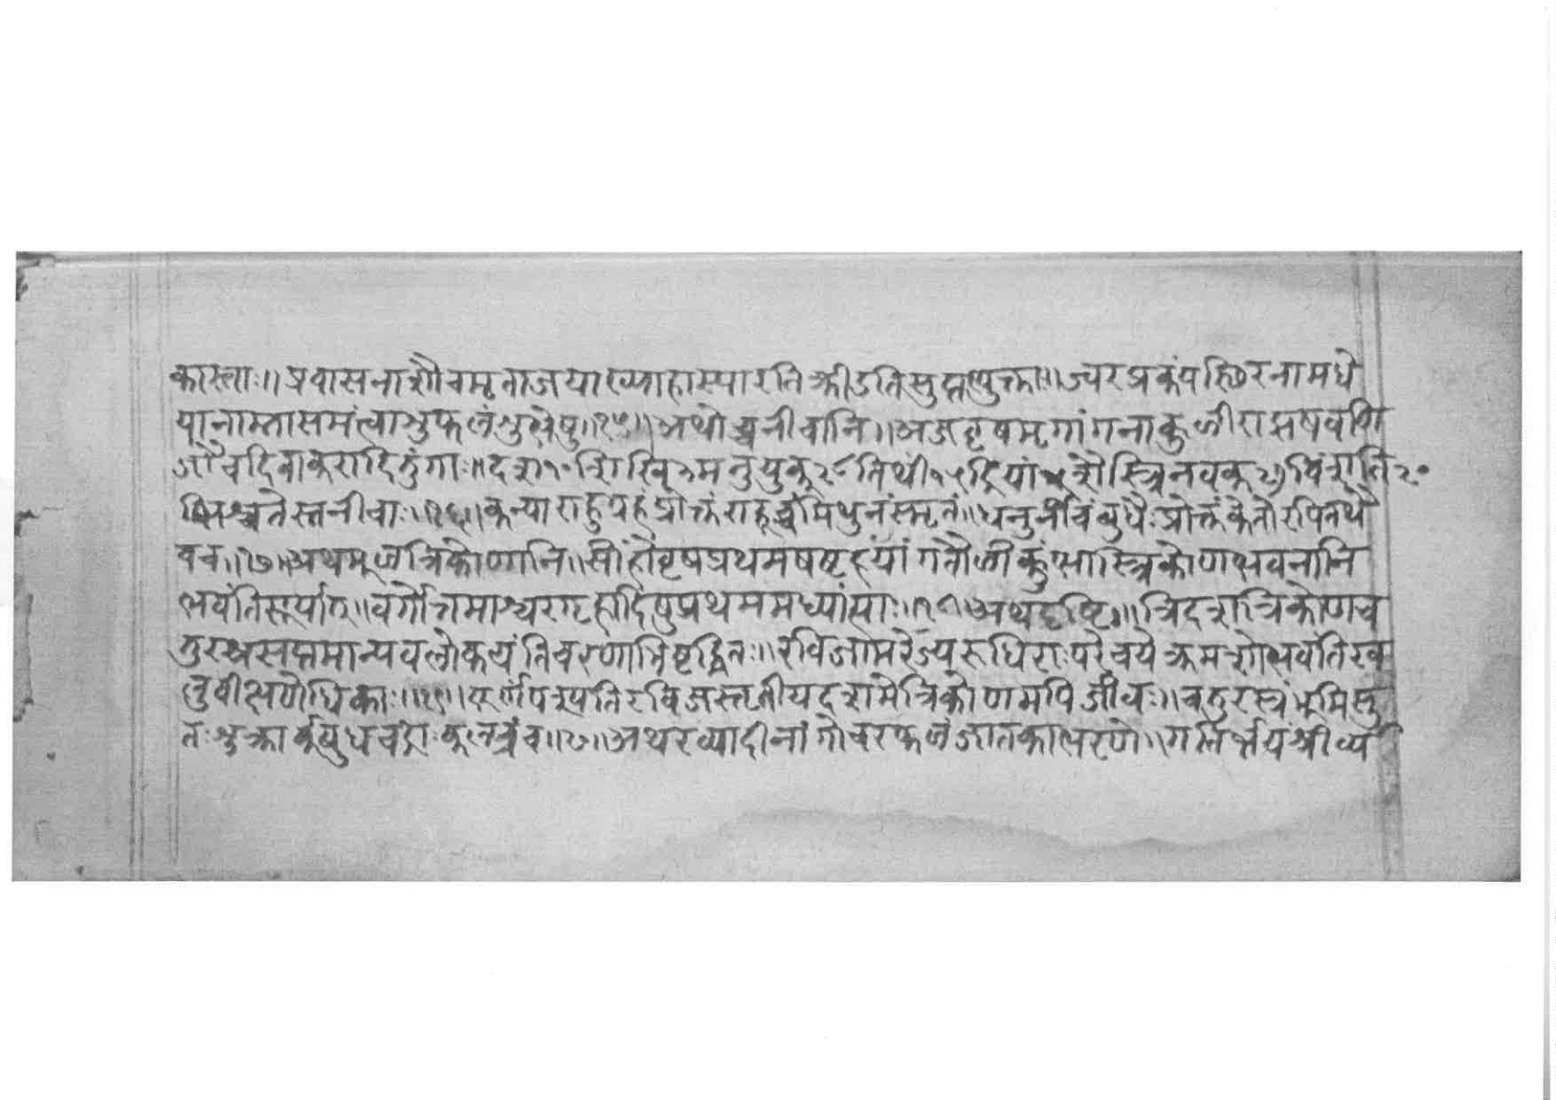 कास्ताः॥ प्रवासनाशौचमृताजयाख्याहास्यारतिक्रीडतिसुप्तभुक्ताः॥ज्वरप्रकंपस्थिरनामधे
यानाम्नासमंत्वाशुफलंशुभेषु॥१५॥अथोच्चनीचानि॥अजवृषमृगांगनाकुळीराझषवणि
जौचदिवाकरादितुंगाः॥दश१०शिखि३मनुयुक्२८तिथीं१५द्रियां५शैस्त्रिनवक२७विंशति२०
भिश्चतेस्तनीचाः॥१६॥कन्याराहुगृहंप्रोक्तंराहूच्चंमिथुनंस्मृतं॥धनुर्नीचंबुधैःप्रोक्तंकेतोरपितथै
वच॥१७॥अथमूळत्रिकोणानि॥सींहोवृषप्रथमषष्टहयांगतौळीकुंभास्त्रिकोणभवनानि
भवंतिसूर्यात्॥वर्गोत्तमाश्चरगृहादिषुप्रथममध्यांत्याः॥१८॥अथदृष्टि॥॥त्रिदशत्रिकोणच
तुरस्रसप्तमान्यवलोकयंतिचरणाभिवृद्धितः॥रविजामरेज्यरुधिराःपरेचयेक्रमशोभवंतिकि
लवीक्षणेधिकाः॥१९॥पूर्णंपश्यतिरविजस्तृतीयदशमेत्रिकोणमपिजीवः॥चतुरस्रंभूमिसु
तःशुक्रार्कबुधचंद्राःकलत्रंच॥२०॥अथरव्यादीनांगोचरफळंजातकाभरणे॥गतिर्भयंश्रीर्व्य